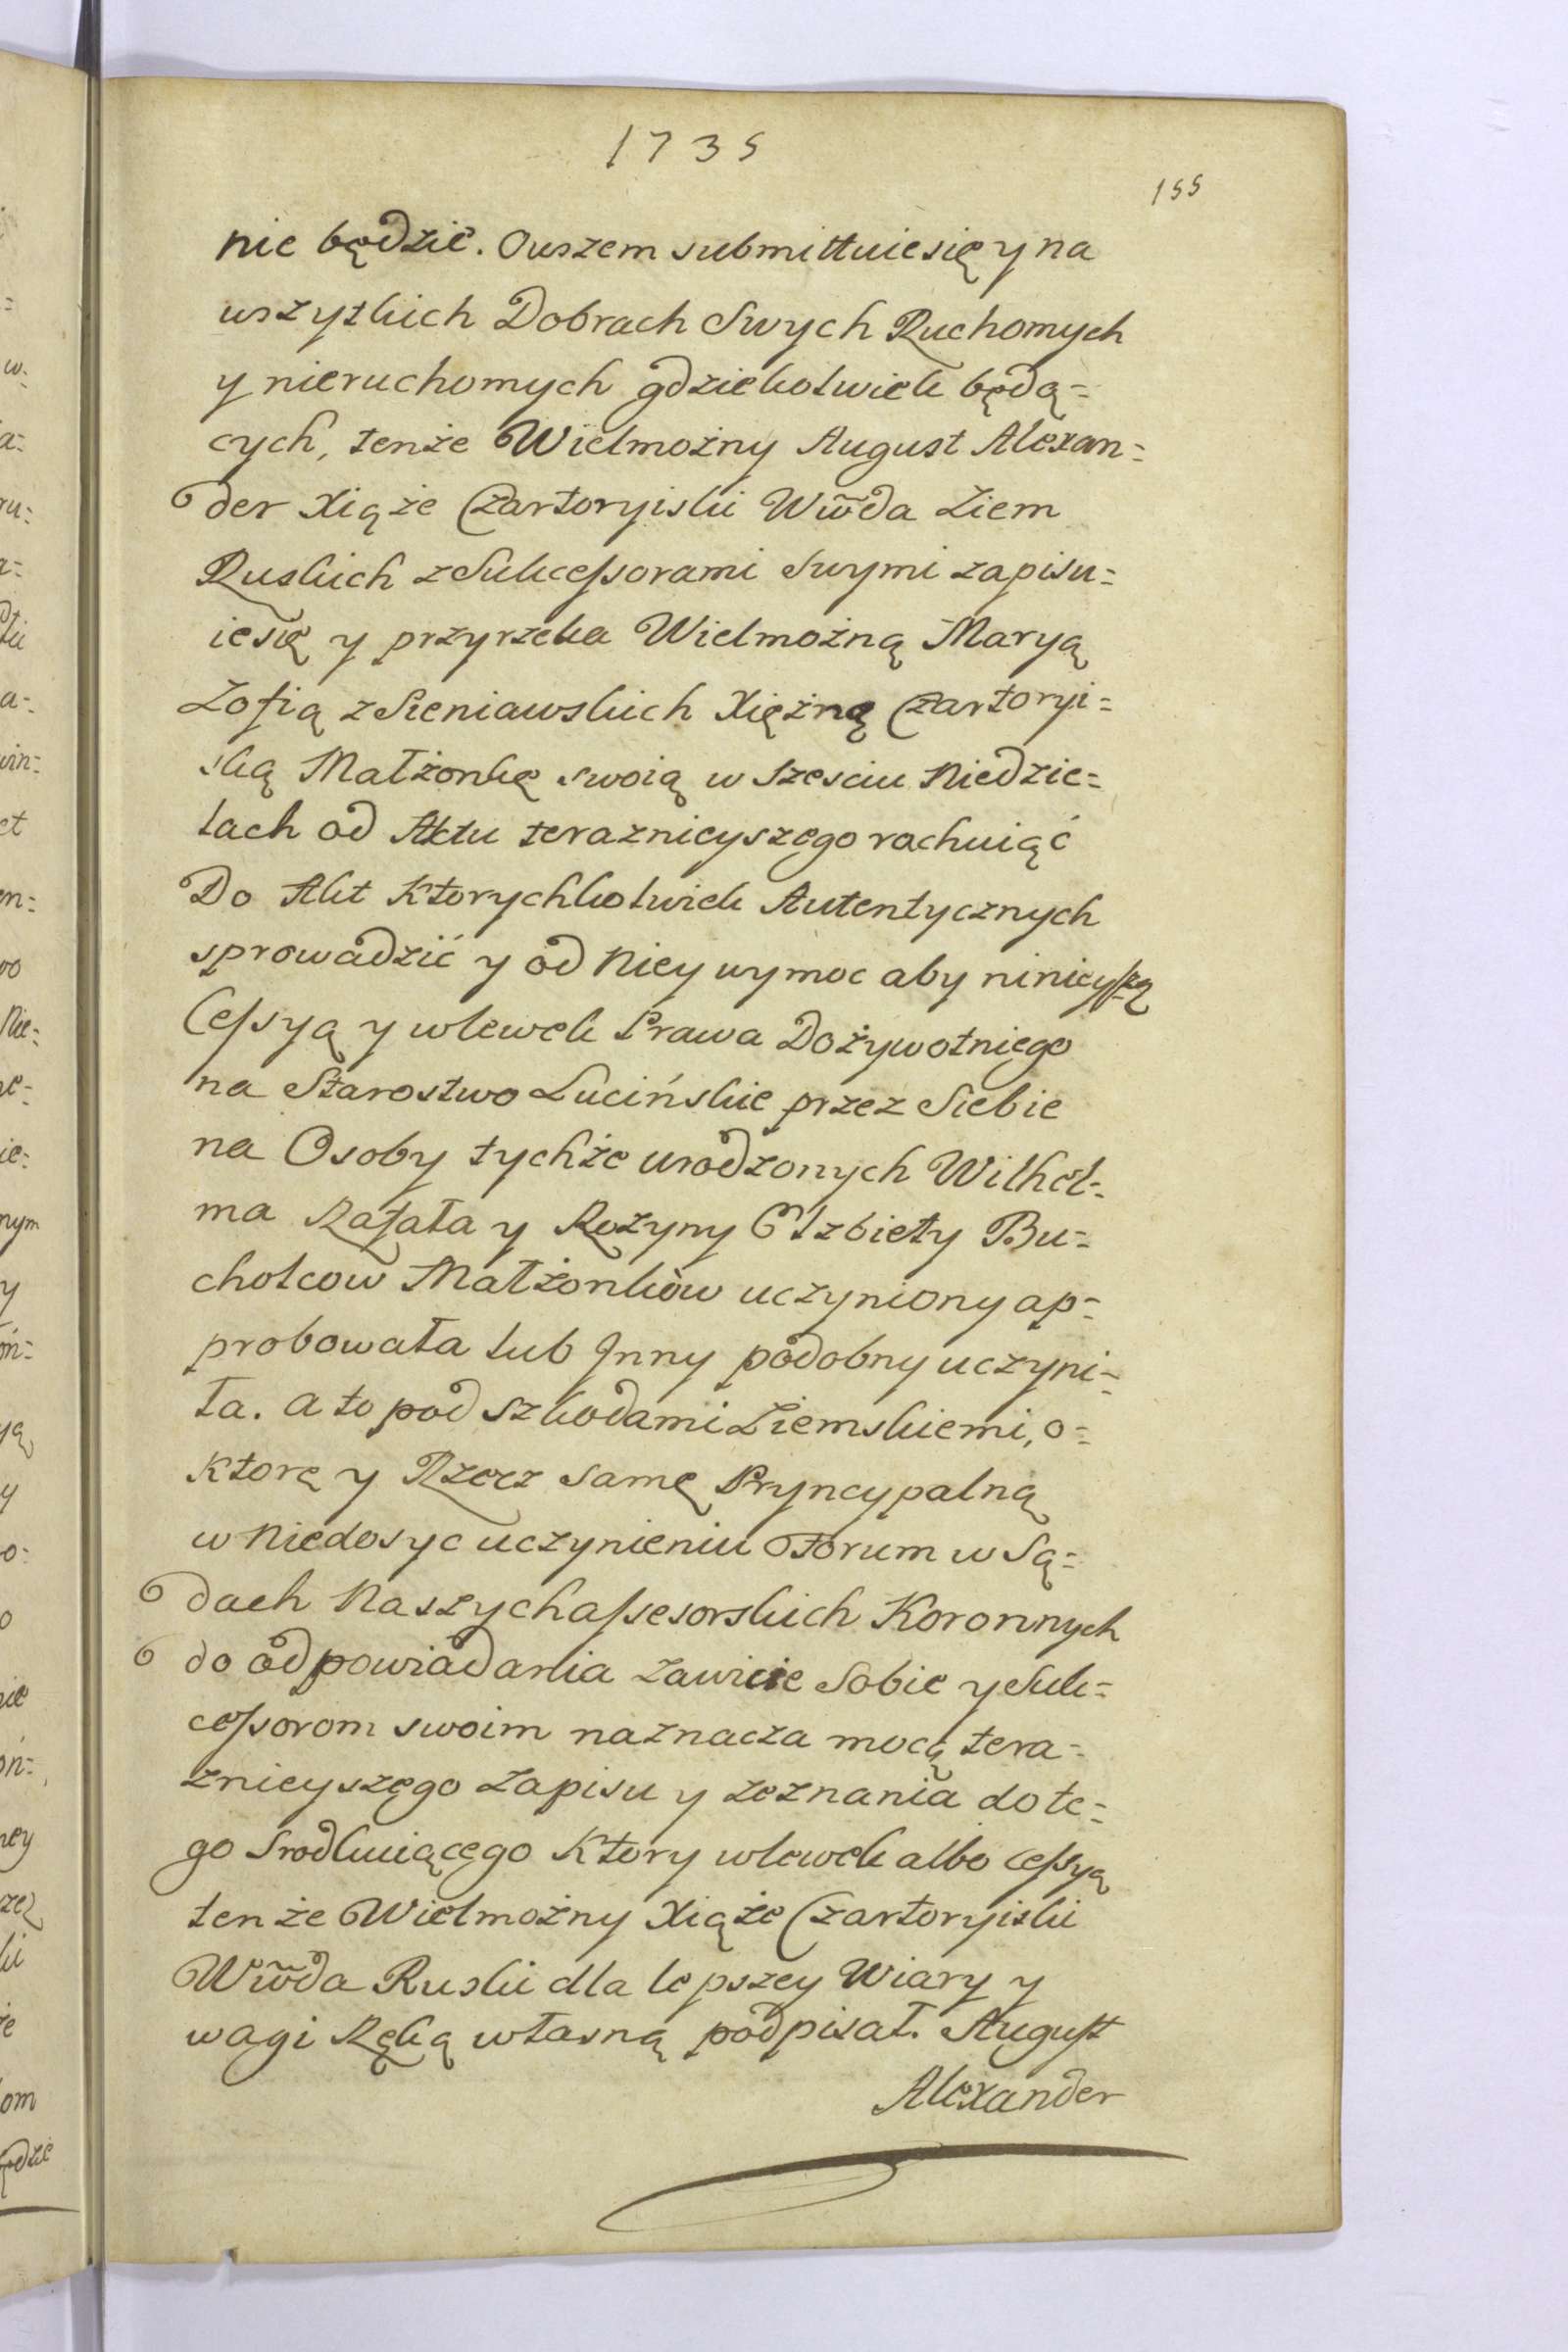 1735
155
nie będzie. Owszem submittuie się y na
wszytkich Dobrach Swych Ruchomych
y nieruchomych gdziekolwiek będą=
cych, tenże Wielmożny August Alexan=
der Xiąże Czartoryiski Wwda Ziem
Ruskich z Sukcessorami Swymi zapisu=
ie się y przyrzeka Wielmożną Maryą
Zofią z Sieniawskich Xiężną Czartoryi=
ską Małżonkę swoią w Szesciu Niedzie=
lach od Aktu teraznieyszego rachuiąć
Do Akt Ktorychkolwiek Autentycznych
sprowadzić y od Niey wymoc aby ninieyszą
Cessyą y wlewek Prawa Dożywotniego
na Starostwo Lucińskie przez Siebie
na Osoby tychże urodzonych Wilhel=
ma Rafała y Rozyny Elzbiety Bu=
cholcow Małżonków uczyniony ap=
probowała lub Inny podobny uczyni=
ła. a to pod szkodami Ziemskiemi, o=
Ktorę y Rzecz Samę Pryncypalną
w Niedosyc uczynieniu Forum w Są=
dach Naszych assesorskich Koronnych
do odpowiadania zawicie Sobie y Suk=
cessorom swoim naznacza mocą tera=
znieyszego Zapisu y zeznania do te=
go Srodkuiącego Ktory wlewek albo cessyą
tenże Wielmożny Xiąże Czartoryiski
Wwda Ruski dla lepszey Wiary y
wagi Ręką własną podpisał. August
Alexander